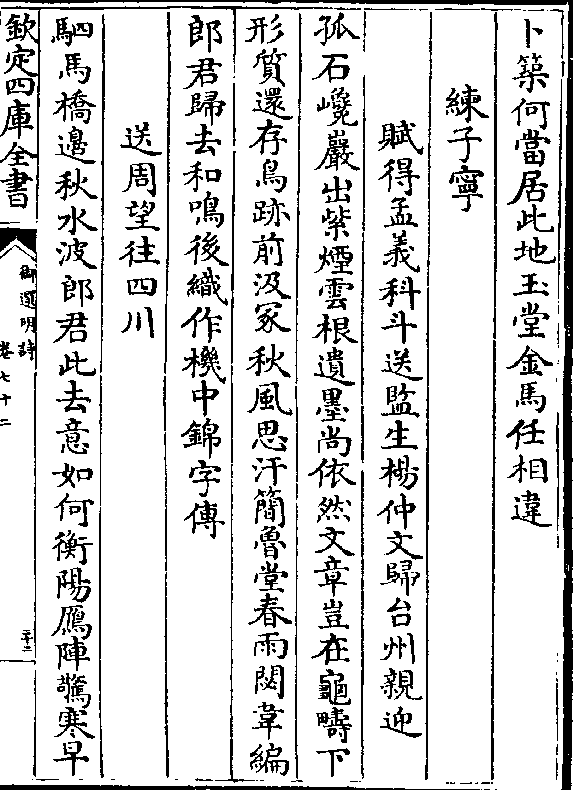 卜築何當居此地玉堂金馬任相違
練子寧
賦得孟義科斗送監生楊仲文歸台州親迎
孤石巉巖出紫煙雲根遺墨尚依然文章豈在龜疇下
形質還存鳥跡前汲冢秋風思汗簡魯堂春雨閟韋編
郎君歸去和鳴後織作機中錦字傳
送周望往四川
駟馬橋邊秋水波郎君此去意如何衡陽鴈陣驚寒早
欽定四庫全書
御選明詩
卷七十二